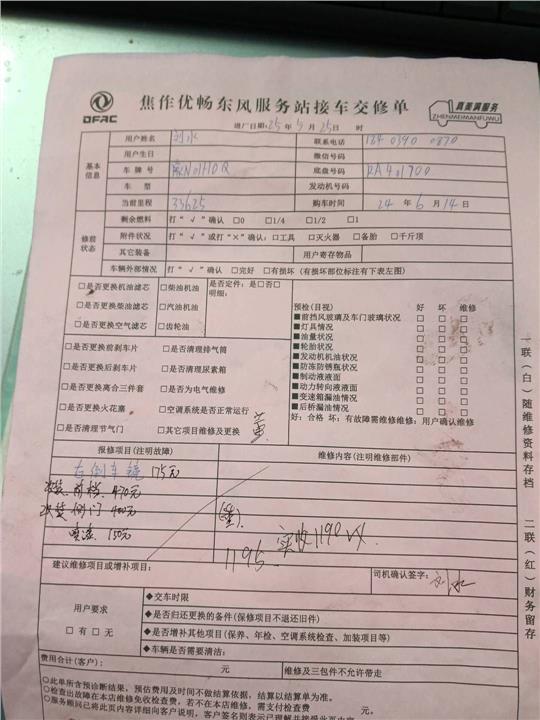 DFAC
焦作优畅东风服务站接车交修单
真美满服务
ZHENMEIMANFUWU
进厂日期：25年5月25日 时
基本信息
用户姓名 刘水 联系电话
用户生日 微信号码
车牌号 底盘号码 RA401700
车型 发动机号码
当前里程 33625 购车时间 24年6月14日
修前状态
剩余燃料 打“√”确认 □0 □1/4 □1/2 □1
附件状况 打“√”或打“×”确认：□工具 □灭火器 □备胎 □千斤顶
其它装备 用户寄存物品
车辆外部情况 打“√”确认 □完好 □有损坏（有损坏部位标注有下表左图）
□是否更换机油滤芯 □柴油机油 是否定件：是□否□
明细：
□是否更换柴油滤芯 □汽油机油
□是否更换空气滤芯 □齿轮油
□是否更换前刹车片 □是否清理排气筒
□是否更换后刹车片 □是否清理尿素箱
□是否更换离合三件套 □是否为电气维修
□是否更换火花塞 □空调系统是否正常运行
□是否清理节气门 □其它项目维修及更换
预检(目视) 好 坏 维修
■前挡风玻璃及车门玻璃状况 □ □ □
■灯具情况 □ □ □
■油量状况 □ □ □
■轮胎状况 □ □ □
■发动机机油状况 □ □ □
■防冻防锈瓶状况 □ □ □
■制动液液面 □ □ □
■动力转向液液面 □ □ □
■变速箱漏油情况 □ □ □
■后桥漏油情况 □ □ □
好：合格 坏：有故障需维修维修：用户确认维修
报修项目(注明故障) 维修内容(注明维修部件)
右倒车镜 175元
前档 470元
侧门 400元
喷漆 150元
1195 实收1190
建议维修项目或增补项目：
司机确认签字：刘水
用户要求
□有□无
◆交车时限
◆是否归还更换的备件(保修项目不退还旧件)
◆是否增补其他项目(保养、年检、空调系统检查、加装项目等)
◆车辆是否需要清洁：
费用合计(客户)： 元 维修及三包件不允许带走
○此单所含预诊断结果，预估费用及时间不做结算依据，结算以结算单为准。
○检查出故障在本店维修免收检查费，若不在本店维修，需支付检查费 元。
○服务顾问已将此页内容详细向客户说明，客户签名则表示已理解并接受此页内容
一联（白）随维修资料存档
二联（红）财务留存